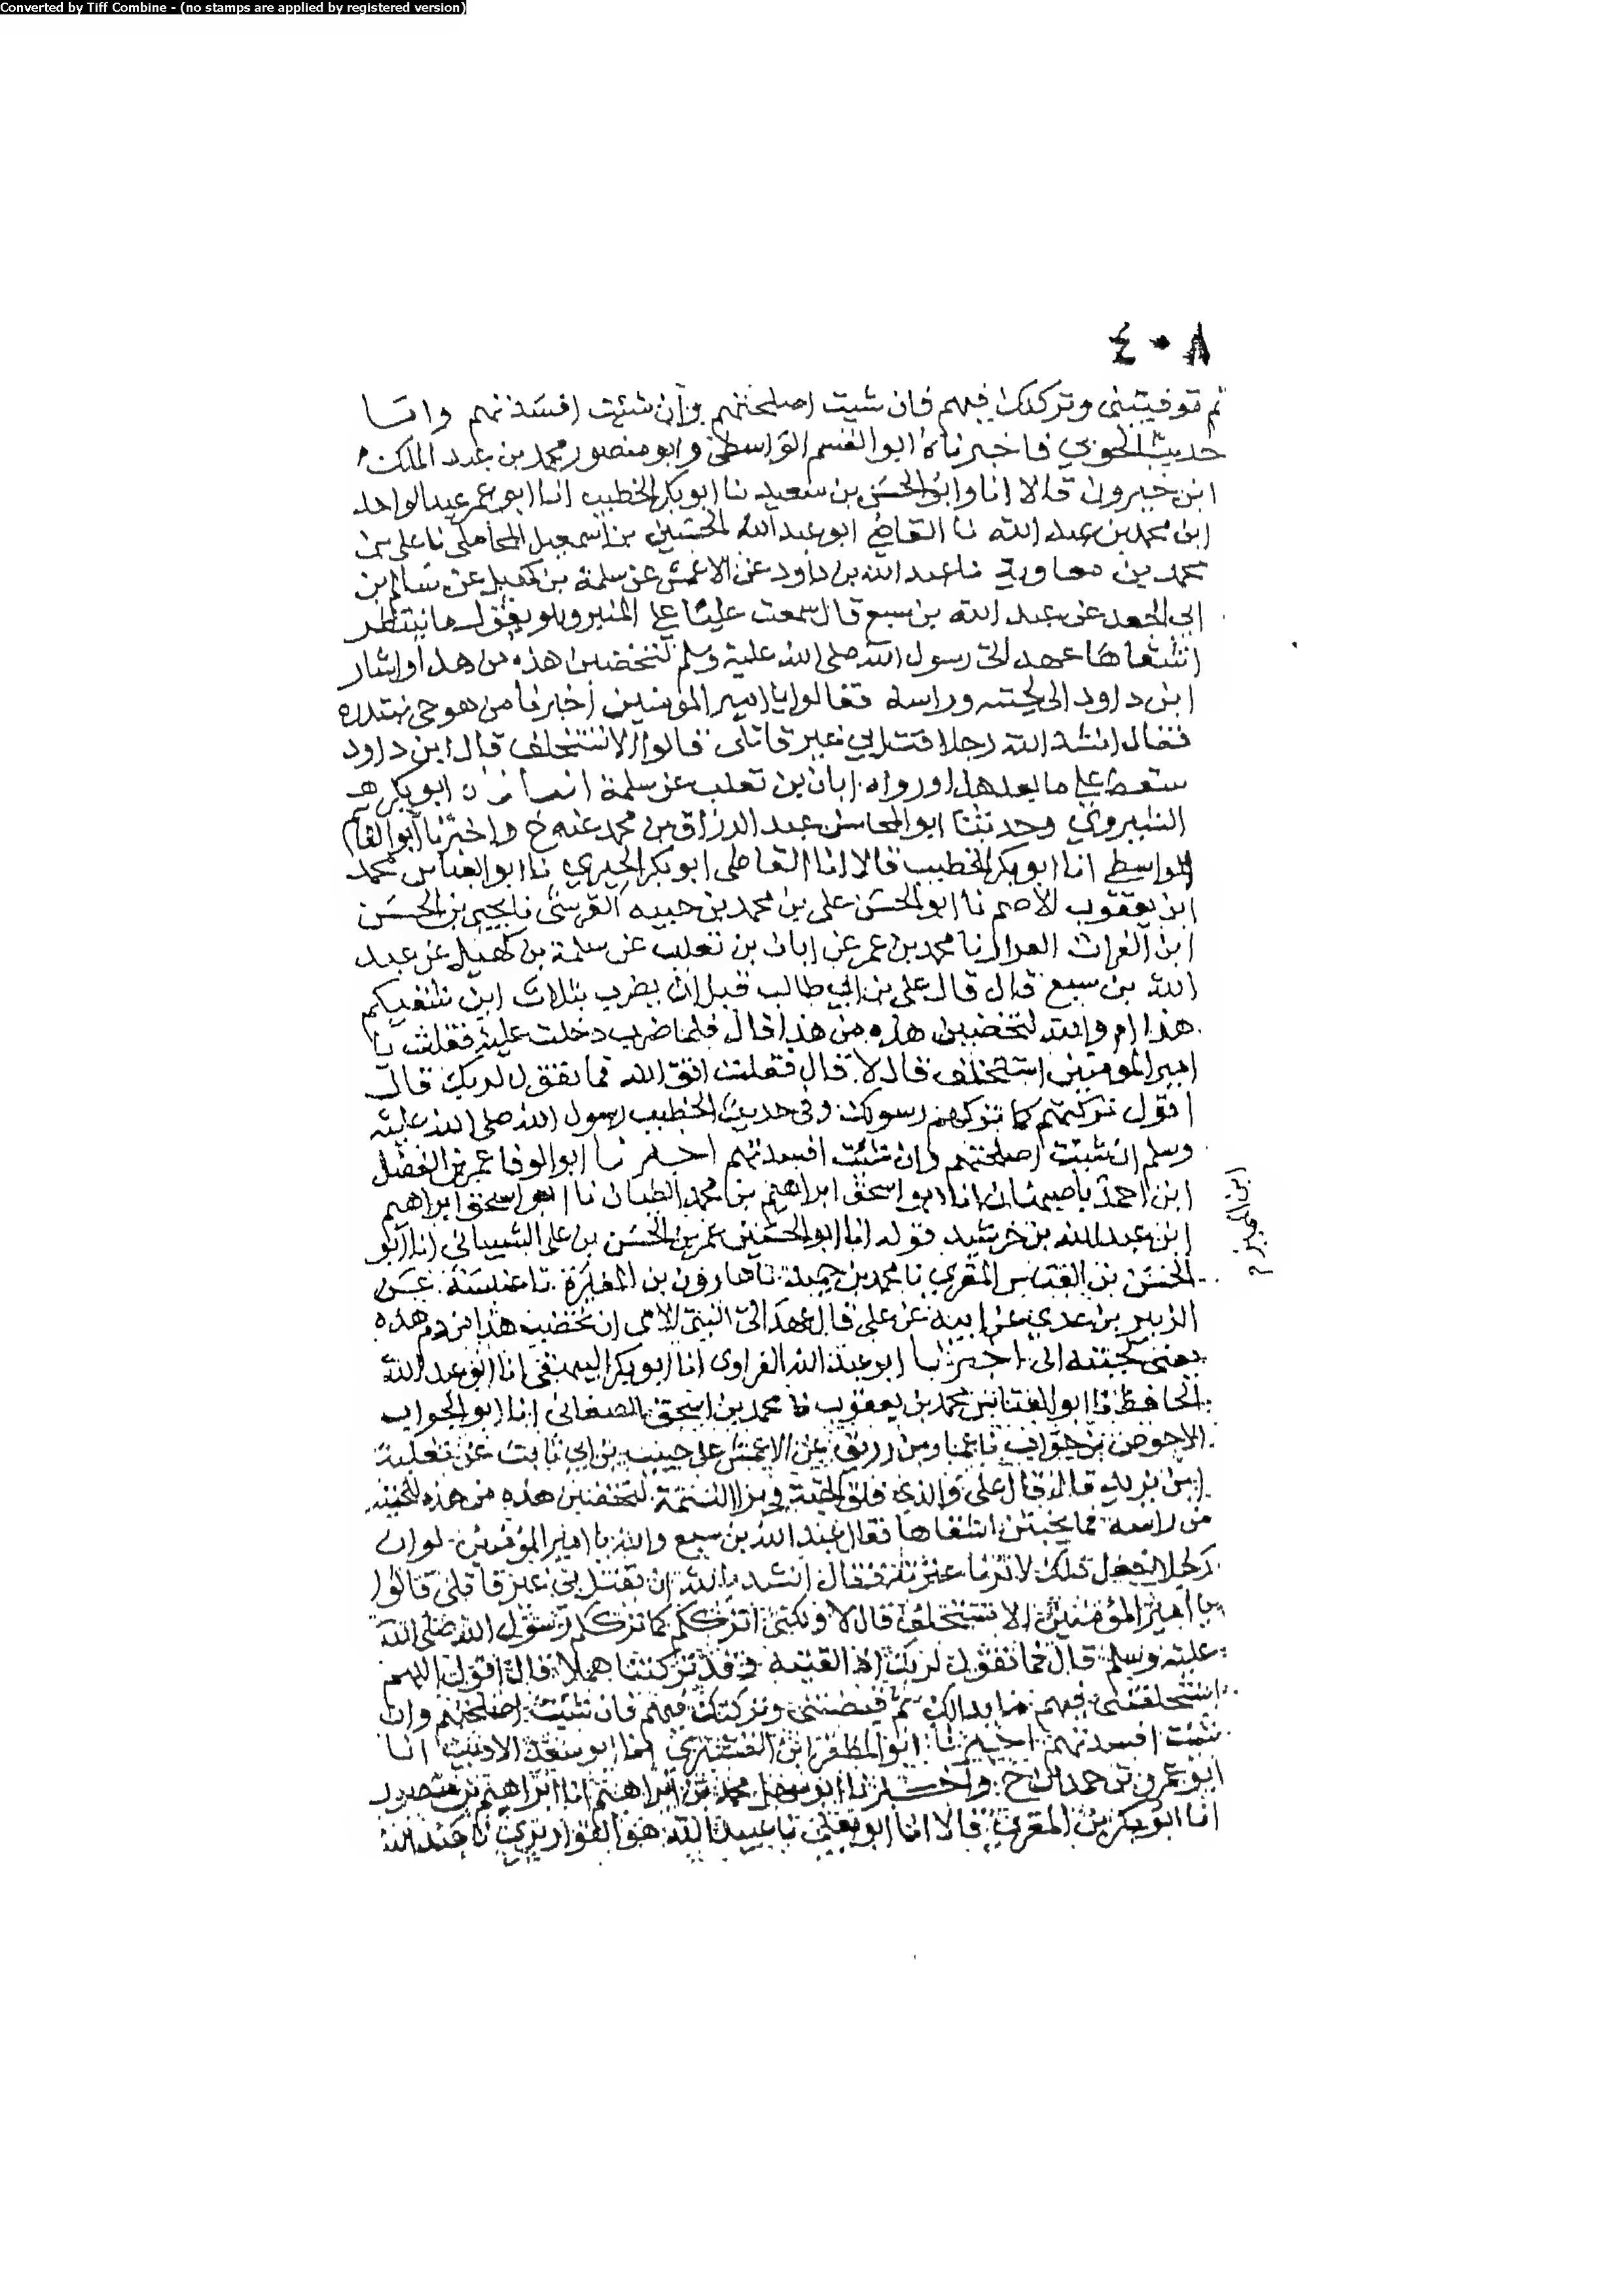 Converted by Tiff Combine - (no stamps are applied by registered version)
٤٠٨
ثم توفيتني وتركتك فيهم فان شيت اصلحتهم وان شئت افسدتهم واما
حديث الخوبي فاخبرناه ابو القسم الواسطي وابو منصور محمد بن عبد الملك
ابن خيرون قالا انا وابو الحسن بن سعيد نا ابو بكر الخطيب انا ابو عمر عبد الواحد
ابن محمد بن عبد الله نا القاضي ابو عبد الله الحسين بن اسمعيل المحاملي نا علي بن
محمد بن معاوية نا عبد الله بن داود عن الاعمش عن سلمة بن كهيل عن سالم بن
ابي الجعد عن عبد الله بن سبع قال سمعت عليا على المنبر وهو يقول ما ينتظر
اشقاها عهد الي رسول الله صلى الله عليه وسلم لتخضبن هذه من هذا واشار
ابن داود الى لحيته وراسه فقالوا يا امير المومنين اخبرنا من هو حتى نبتدره
فقال انشد الله رجلا قتل بي غير قاتلي قالوا الا تستخلف قال ابن داود
سقط علي ما بعد هذا ورواه ابان بن تغلب عن سلمة ابو بكر
الشيروي وحدثنا ابو المحاسن عبد الرزاق بن محمد عنه ح واخبرنا ابو القاسم
الواسطي انا ابو بكر الخطيب قالا انا القاضي ابو بكر الحيري نا ابو العباس محمد
ابن يعقوب الاصم نا ابو الحسن علي بن محمد بن حبيبه القرشي نا يحيى بن الحسن
ابن الفرات نا محمد بن عمر عن ابان بن تغلب عن سلمة بن كهيل عن عبد
الله بن سبع قال قال علي بن ابي طالب قبل ان يضرب بثلاث اين شقيكم
هذا ام والله لتخضبن هذه من هذا قال فلما ضرب دخلت عليه فقلت يا
امير المومنين استخلف قال لا قال فقلت اتق الله فما تقول لربك قال
اقول تركتهم كما تركهم رسولك وفي حديث الخطيب رسول الله صلى الله عليه
وسلم ان شئت اصلحتهم وان شئت افسدتهم اخبرنا ابو الوفا عمر بن الفضل
ابن احمد باصبهان انا ابو اسحق ابراهيم بن محمد الطيان نا ابو اسحق ابراهيم
ابن عبد الله بن خرشيد قوله انا ابو الحسين عمر بن الحسن بن علي الشيباني انا ابو
الحسن بن العباس المقري نا محمد بن جميلة نا هارون بن المغيرة نا عنبسة عن
الزبير بن عدي عن ابيه عن علي قال عهد الي النبي الامي ان تخضب هذا من دم هذه
يعني لحيته الى اخبرنا ابو عبد الله الفراوي انا ابو بكر البيهقي انا ابو عبد الله
الحافظ نا ابو العباس محمد بن يعقوب نا محمد بن اسحق الصغاني انا ابو الجواب
الاحوص بن جواب نا عمار بن رزيق عن الاعمش عن حبيب بن ابي ثابت عن ثعلبة
ابن يزيد قال قال علي والذي فلق الحبة وبرا النسمة لتخضبن هذه من هذه للحيته
من راسه فما يحبس اشقاها فقال عبد الله بن سبع والله يا امير المؤمنين لو ان
رجلا فعل ذلك لابرنا عترته فقال انشد بالله ان يقتل بي غير قاتلي قالوا
يا امير المؤمنين الا تستخلف قال لا ولكني اترككم كما ترككم رسول الله صلى الله
عليه وسلم قال فما تقول لربك اذا لقيته وقد تركتنا هملا قال اقول اللهم
استخلفتني فيهم ما بدا لك ثم قبضتني وتركتك فيهم فان شئت اصلحتهم وان
شئت افسدتهم اخبرنا ابو المظفر ابن القشيري انا ابو سعد الاديب انا
ابو عمرو بن حمدان ح واخبرنا ابو سهل محمد بن ابراهيم انا ابراهيم بن منصور
انا ابو بكر بن المقري قالا انا ابو يعلى نا عبيد الله هو القواريري نا عبد الله